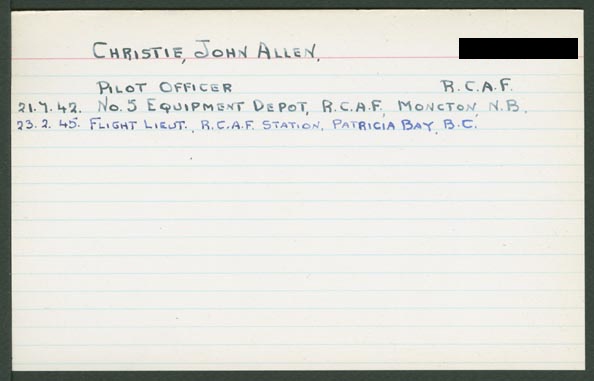 CHRISTIE, JOHN ALLEN,
PILOT OFFICER R.C.A.F.
21.7.42. NO. 5 EQUIPMENT DEPOT, R.C.A.F, MONCTON, N.B.
23.2.45. FLIGHT LIEUT., R.C.A.F. STATION, PATRICIA BAY, B.C.